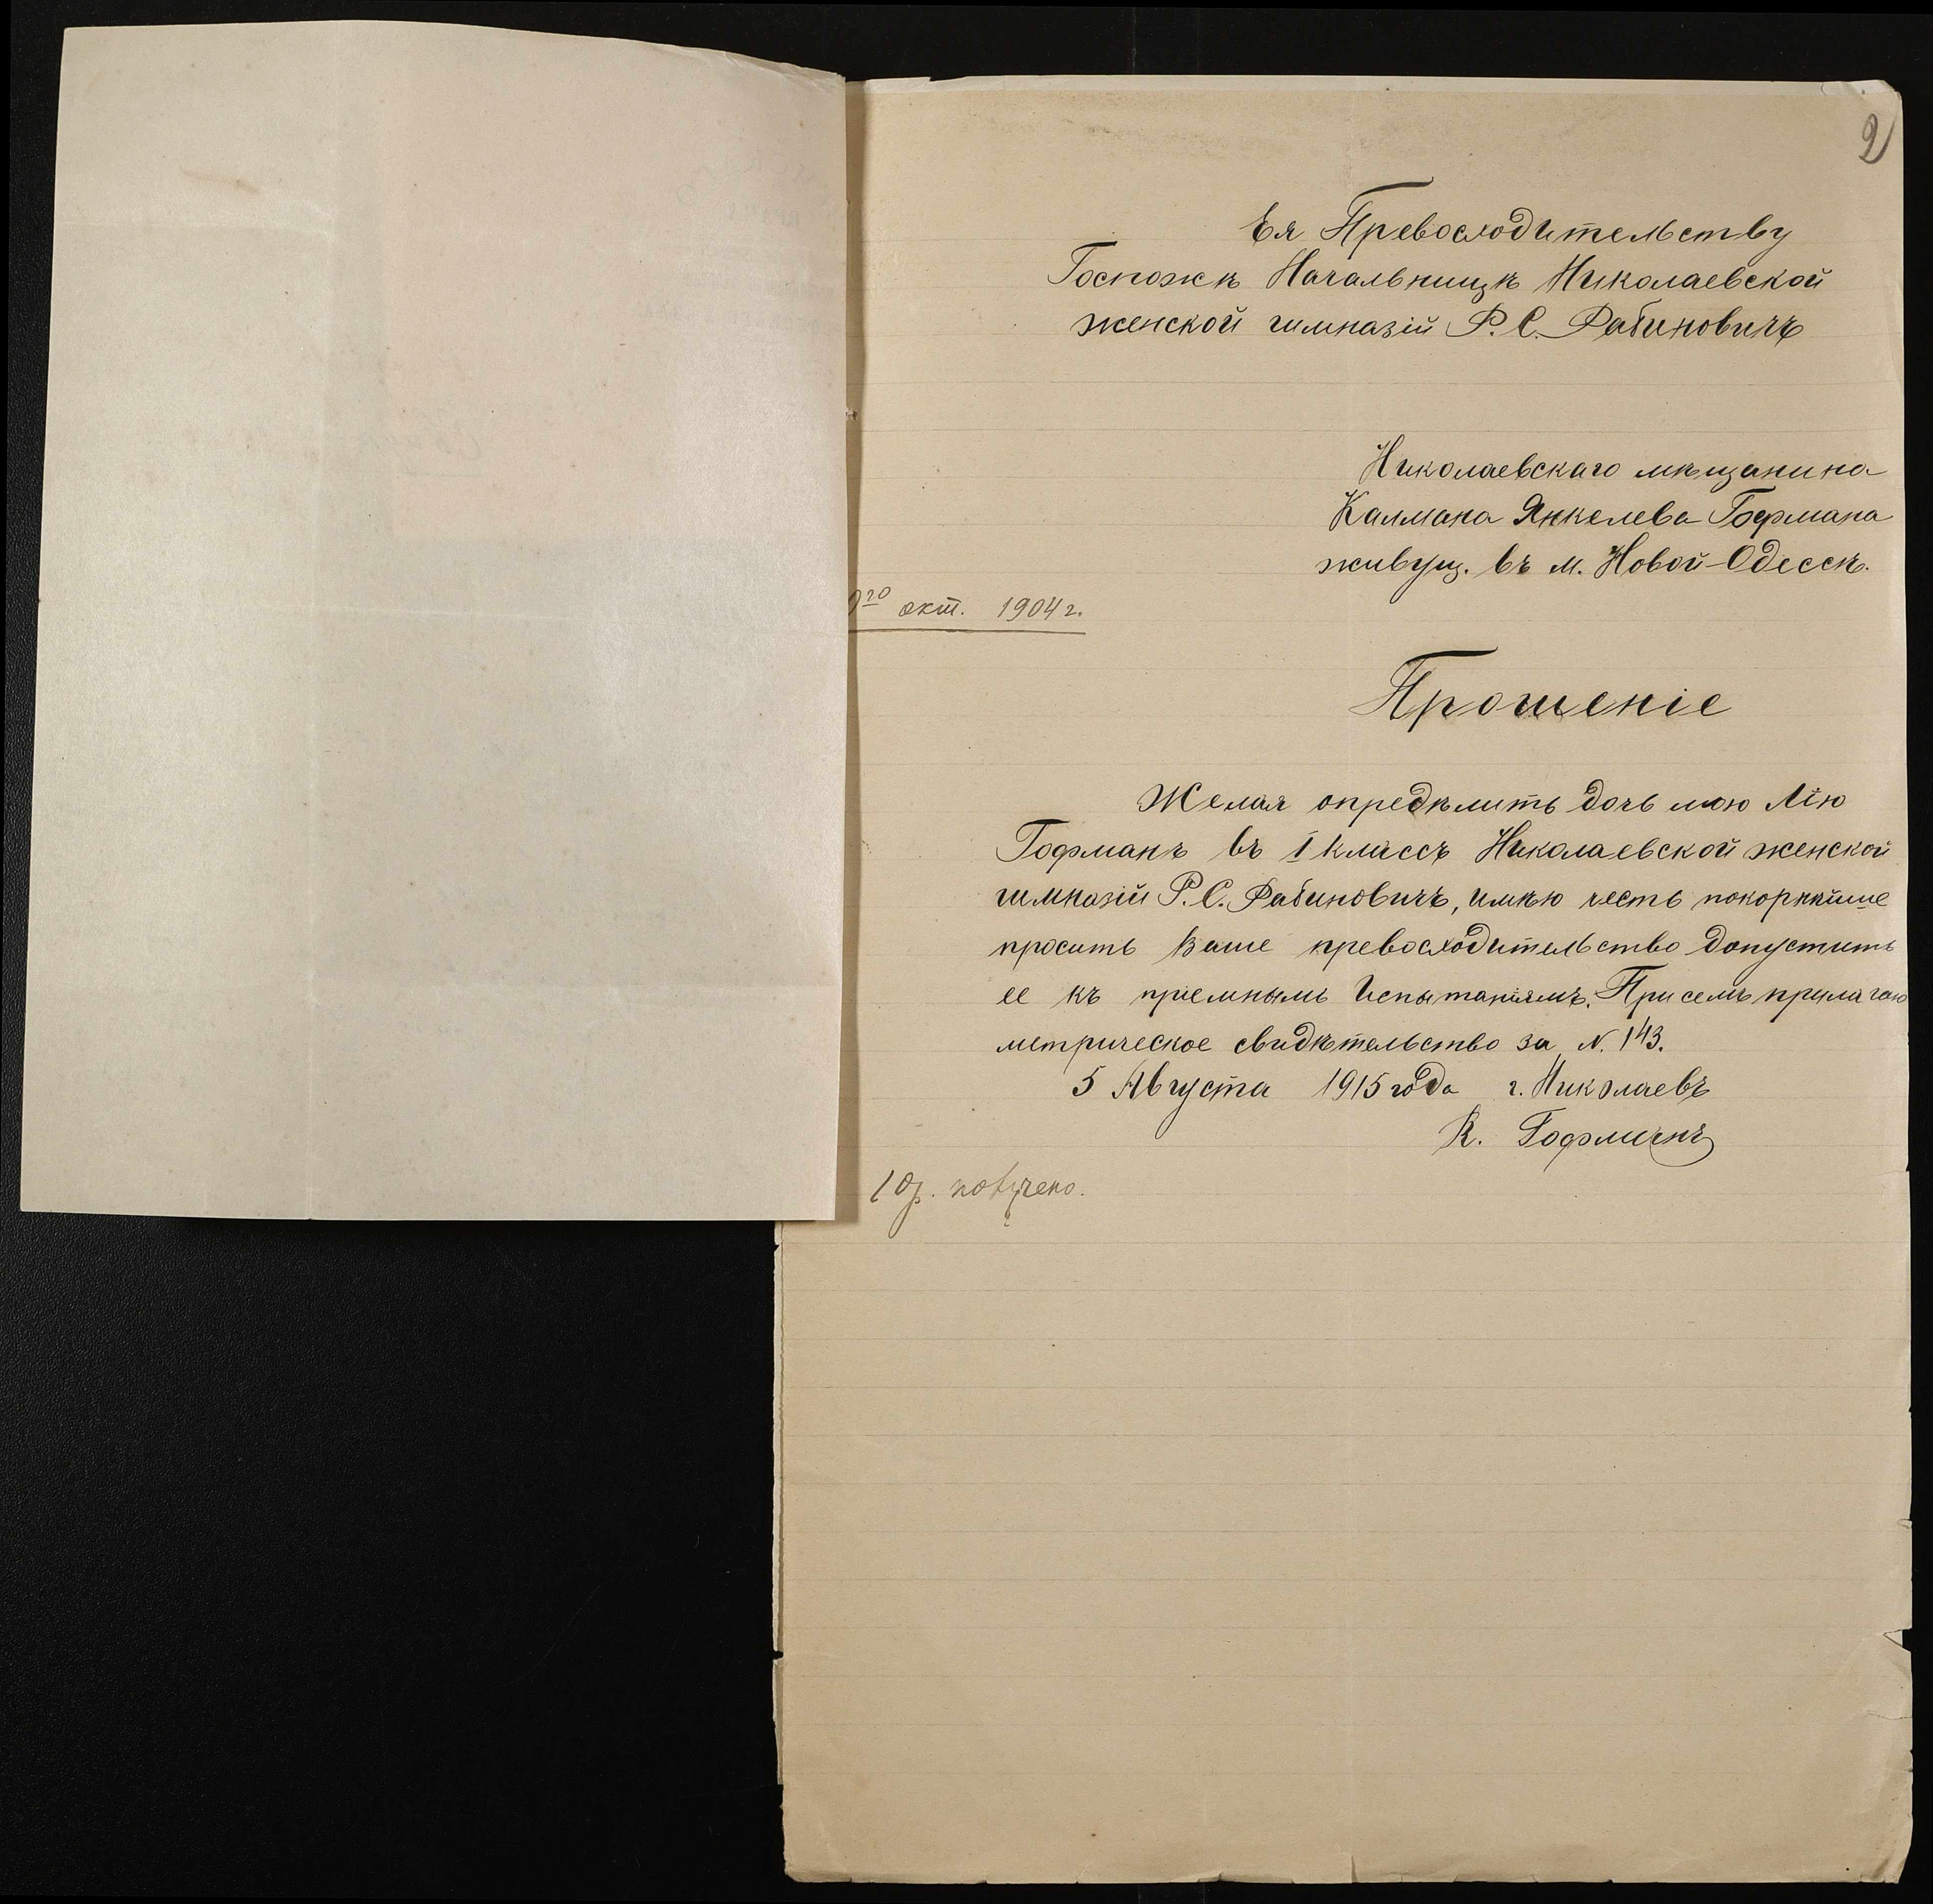 2
Ея Превосходительству
Госпожѣ Начальницѣ Николаевской
женской гимназіи Р. С. Рабиновичъ
Николаевскаго мѣщанина
Калмана Янкелева Гофмана
живущ. въ м. Новой-Одессѣ.
окт. 1904 г.
Прошеніе
Желая опредѣлить дочь мою Лію
Гофманъ въ I классъ Николаевской женской
гимназіи Р. С. Рабиновичъ, имѣю честь покорнѣйше
просить Ваше превосходительство допустить
ее къ пріемнымъ Испытаніямъ. При семъ прилагаю
метрическое свидѣтельство за N. 143.
5 Августа 1915 года г. Николаевъ
К. Гофманъ
10 р. получено.